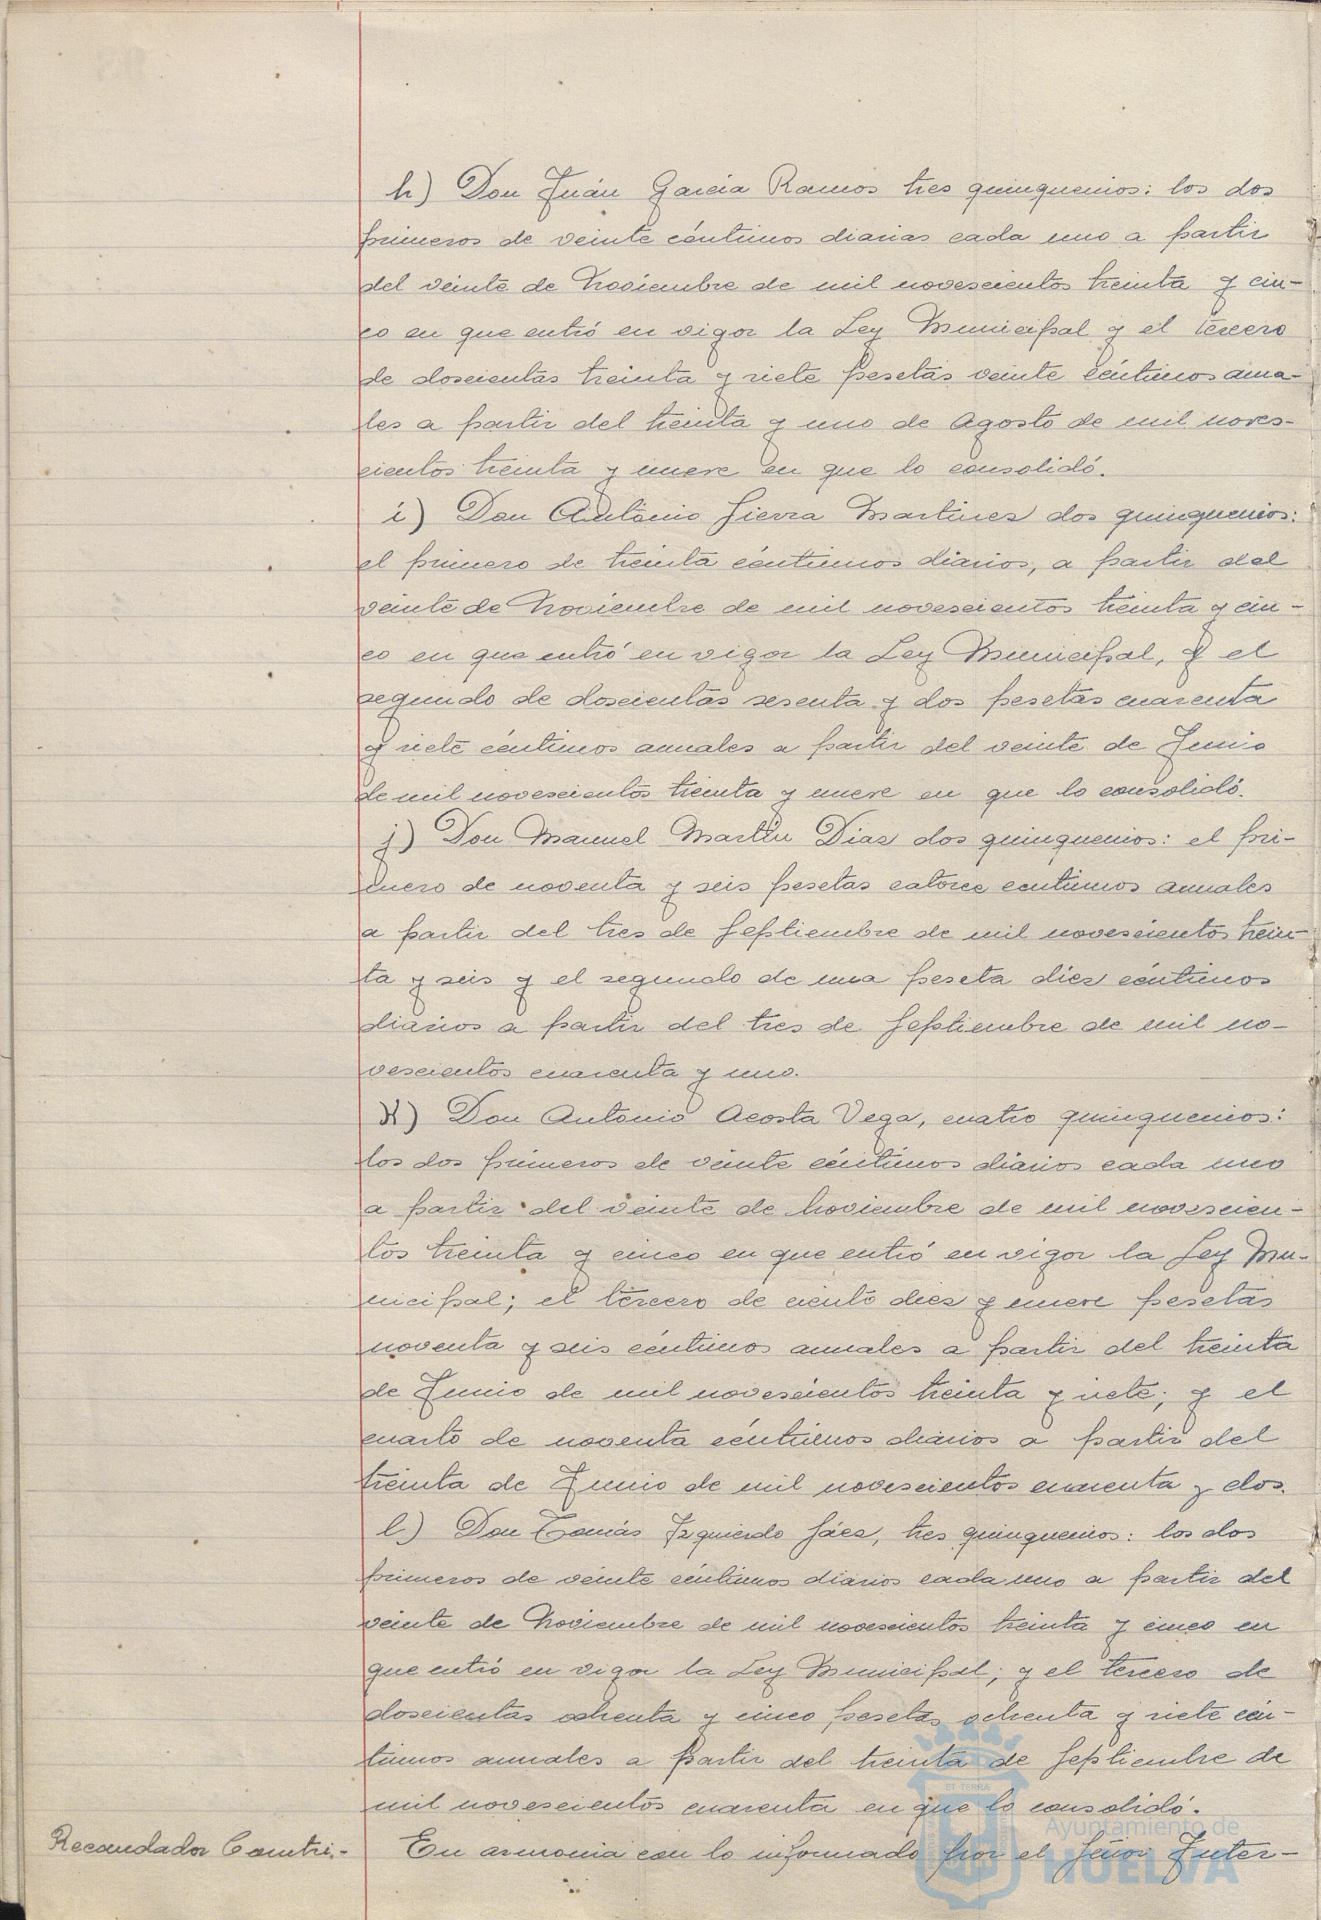 h) Don Juán García Ramos tres quinquenios: los dos
primeros de veinte céntimos diarias cada uno a partir
del veinte de Noviembre de mil novescientos treinta y cin-
co en que entró en vigor la Ley Municipal y el tercero
de doscientas treinta y siete pesetas veinte céntimos anua-
les a partir del treinta y uno de Agosto de mil noves-
cientos treinta y nueve en que lo consolidó.
i) Don António Sierra Martinez dos quinquenios:
el primero de treinta céntimos diarios, a partir del
veinte de Noviembre de mil novescientos treinta y cin-
co en que entró en vigor la Ley Municipal, y el
segundo de doscientas sesenta y dos pesetas cuarenta
y siete céntimos anuales a partir del veinte de Junio
de mil novescientos treinta y nueve en que lo consolidó.
j) Don Manuel Martín Diaz dos quinquenios: el pri-
mero de noventa y seis pesetas catorce centimos anuales
a partir del tres de Septiembre de mil novescientos trein-
ta y seis y el segundo de una peseta diez céntimos
diarios a partir del tres de Septiembre de mil no-
vescientos cuarenta y uno.
k) Don Antonio Acosta Vega, cuatro quinquenios:
los dos primeros de veinte céntimos diarios cada uno
a partir del veinte de Noviembre de mil novescien-
tos treinta y cinco en que entró en vigor la Ley Mu-
nicipal; el tercero de ciento diez y nueve pesetas
noventa y seis céntimos anuales a partir del treinta
de Junio de mil novescientos treinta y siete; y el
cuarto de noventa céntimos diarios a partir del
treinta de Junio de mil novescientos cuarenta y dos.
l) Don Tomás Izquierdo Sáez, tres quinquenios: los dos
primeros de veinte céntimos diarios cada uno a partir del
veinte de Noviembre de mil novescientos treinta y cinco en
que entró en vigor la Ley Municipal; y el tercero de
doscientas ochenta y cinco pesetas ochenta y siete cén-
timos anuales a partir del treinta de Septiembre de
mil novescientos cuarenta en que lo consolidó.
Recaudador Contri.- En armonia con lo informado por el Señor Inter-
ET TERRÆ
Ayuntamiento de
HUELVA